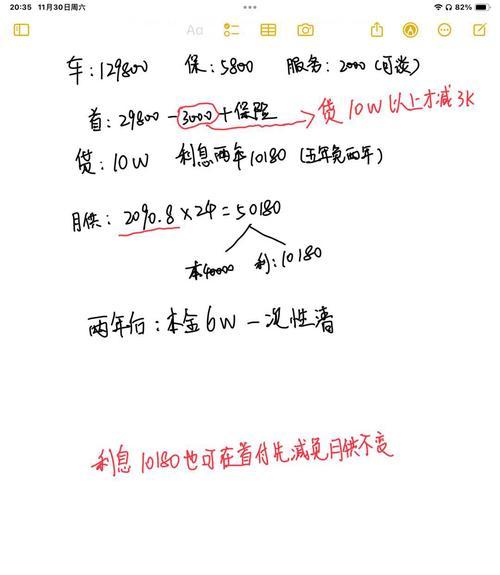 20:35 11月30日周六 82%
Aa
车:129800 保:5800 服务:2000(可谈)
首:29800-3000+保险 贷10W以上才减3K
贷:10W 利息两年10180(五年免两年)
月供:2090.8×24=50180
本40000 利:10180
两年后:本金6W一次性清
利息10180也可在首付先减免月供不变